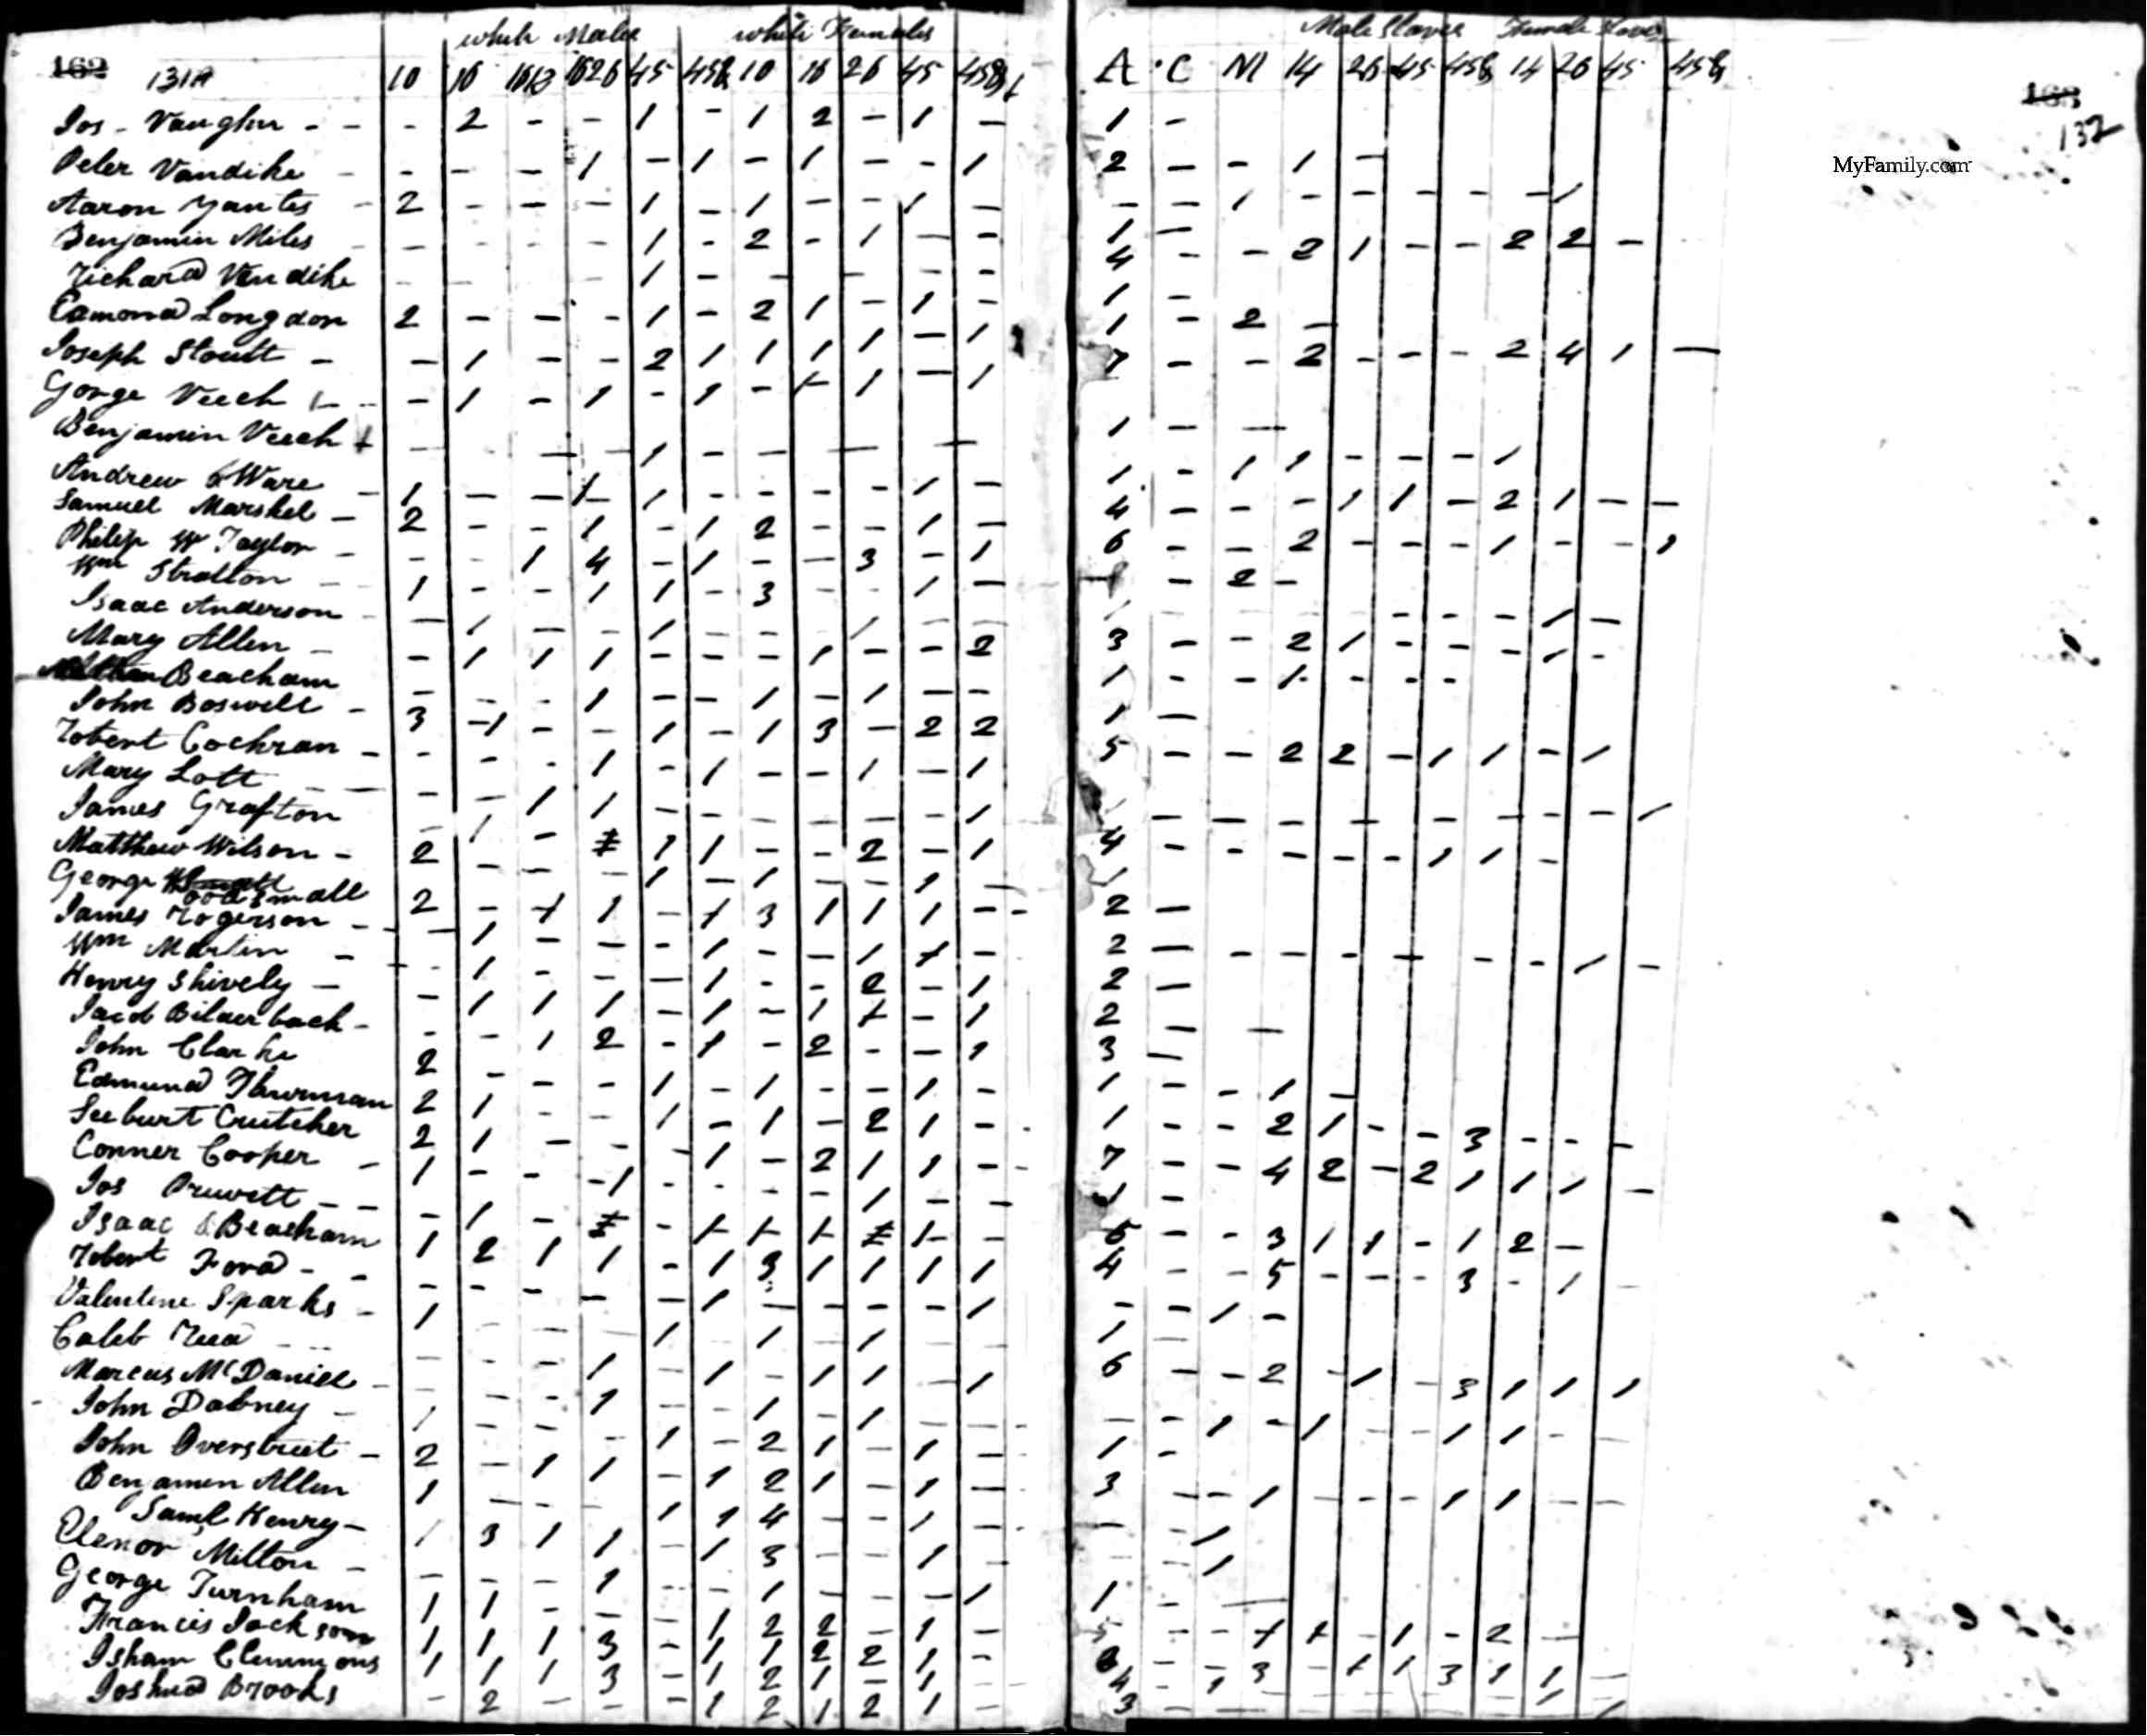 white Males white Females Male Slaves Female Slaves
162 131A 10 16 1618 1626 45 45& 10 16 26 45 45& A C M 14 26 45 45& 14 26 45 45& 163
132
MyFamily.com
Jos - Vaughn - - - 2 - - 1 - 1 2 - 1 - 1 -
Peter Vandike - - - - 1 - 1 - 1 - - 1 2 - - 1 -
Aaron Yantes - 2 - - - 1 - 1 - - 1 - - - 1 - - - - - 1
Benjamin Miles - - - - - 1 - 2 - 1 - - 1 -
Richard Vandike - - - 1 - - - - - 4 - - 2 1 - - 2 2 -
Edmond Longdon 2 - - - 1 - 2 1 - 1 - 1 -
Joseph Stoutt - - 1 - - 2 1 1 1 1 - 1 1 - 2 -
George Veech - 1 - 1 - 1 - 1 1 - 1 7 - - 2 - - - 2 4 1 -
Benjamin Veech - - - 1 - - - - 1 - -
Andrew Ware - 1 - - 1 1 - - - - 1 - 1 - 1 1 - - - 1
Samuel Marshel - 2 - - 1 - 1 2 - - 1 - 4 - - - 1 1 - 2 1 - -
Philip W Taylor - - - 1 4 - 1 - - 3 - 1 6 - - 2 - - - 1 - - 1
Wm Stratton - 1 - - 1 1 - 3 - - 1 - - 2 -
Isaac Anderson - 1 - - 1 - - - 1 - - - - - - 1 -
Mary Allen - - 1 1 1 - - - 1 - - 2 3 - - 2 1 - - - 1 -
Beacham - - - 1 - - 1 - 1 - - 1 - - 1 - - -
John Boswell - 3 1 - - 1 - 1 3 - 2 2 1 -
Robert Cochran - - - - 1 - 1 - - 1 - 1 5 - - 2 2 - 1 1 - 1
Mary Lott - - - 1 1 - - - - - - 1
James Grafton - 1 - - - - - - - - - 1
Matthew Wilson - 2 - - 1 1 - - 2 - 1 4 - - - - - 1 1 -
George Wood Small 1 - 1 - - 1 -
James Rogerson - 2 - 1 1 - 1 3 1 1 1 - 2 -
Wm Martin - - 1 - - - 1 - - 1 1 - 2 - - - - - - - 1 -
Henry Shively - - 1 - - - 1 - - 2 - 1 2 -
Jacob Bilderback - - 1 1 1 - 1 - 1 1 - 1 2 - -
John Clarke 2 - 1 2 - 1 - 2 - - 1 3 -
Edmund Thurman 2 - - - 1 - 1 - - 1 - 1 - - 1 -
Seeburt Crutcher 2 1 - - 1 - 1 - 2 1 - 1 - - 2 1 - - 3 - - -
Conner Cooper - 1 1 - - - 1 - 2 1 1 - 7 - - 4 2 - 2 1 1 1 -
Jos Pruwett - - - - - 1 - - - - 1 - - 1 -
Isaac Beacham 1 1 - - 1 1 1 1 - 5 - - 3 1 1 - 1 2 -
Robert Ford - - 1 2 1 1 - 1 3 1 1 1 1 4 - - 5 - - - 3 - 1
Valentine Sparks - 1 - - - - 1 - - - - 1 - - 1 -
Caleb Reed - - 1 1 - 1 - 1 -
Marcus McDaniel - - - - 1 - 1 - 1 1 - 1 6 - - 2 - 1 - 3 1 1 1
John Dabney - 1 - - 1 - - 1 - 1 - - - - 1 - 1 - - 1 1 - -
John Overstreet - 2 - - - 1 - 2 1 - 1 - 1 -
Benjamen Allen 1 - 1 1 - 1 2 1 - 1 - 3 - - 1 - - - 1 1 - -
Saml Henry - 1 - - - 1 1 4 - - 1 - - - 1
Elenor Milton - 3 1 1 - 1 3 - - 1 - - - 1
George Turnham - - - 1 - - 1 - - - 1 1 - -
Francis Jackson 1 1 - - - 1 2 2 - 1 - - - 1 1 - 1 - 2 -
Isham Clemmons 1 1 1 3 - 1 1 2 2 1 - - - 3 - 1 1 3 1 1 -
Joshua Brooks - 2 - - - 1 2 1 2 1 - 3